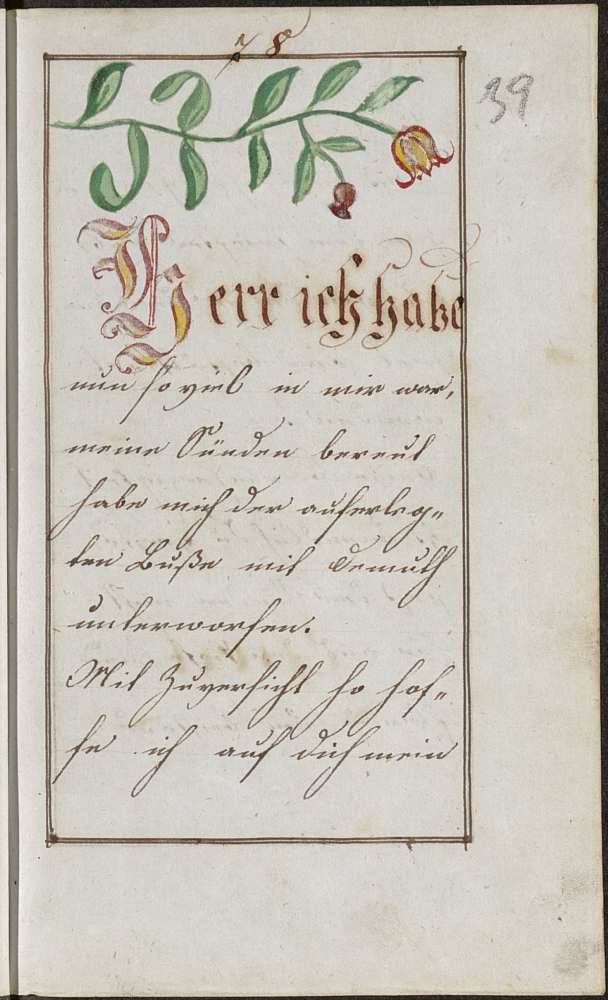 78
39
Herr ich habe
nun so viel in mir war,
meine Sünden bereut
habe mich der auferleg„
ten Buße mit Demuth
unterworfen.
Mit Zuversicht so hof„
fe ich auf dich mein